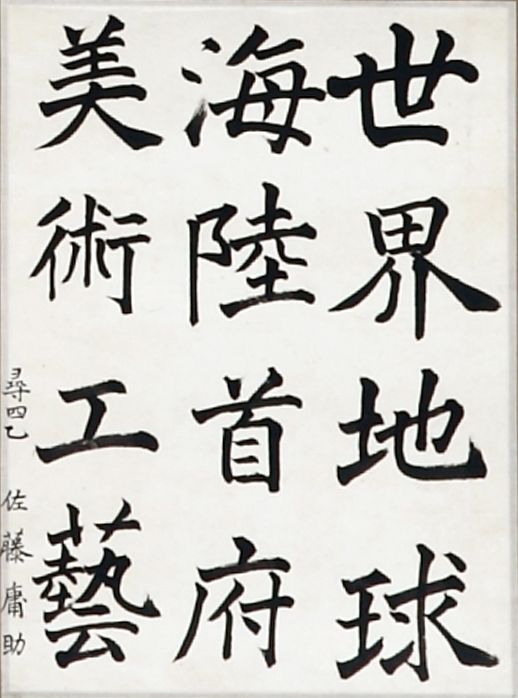 世界地球
海陸首府
美術工藝
尋四乙 佐藤庸助